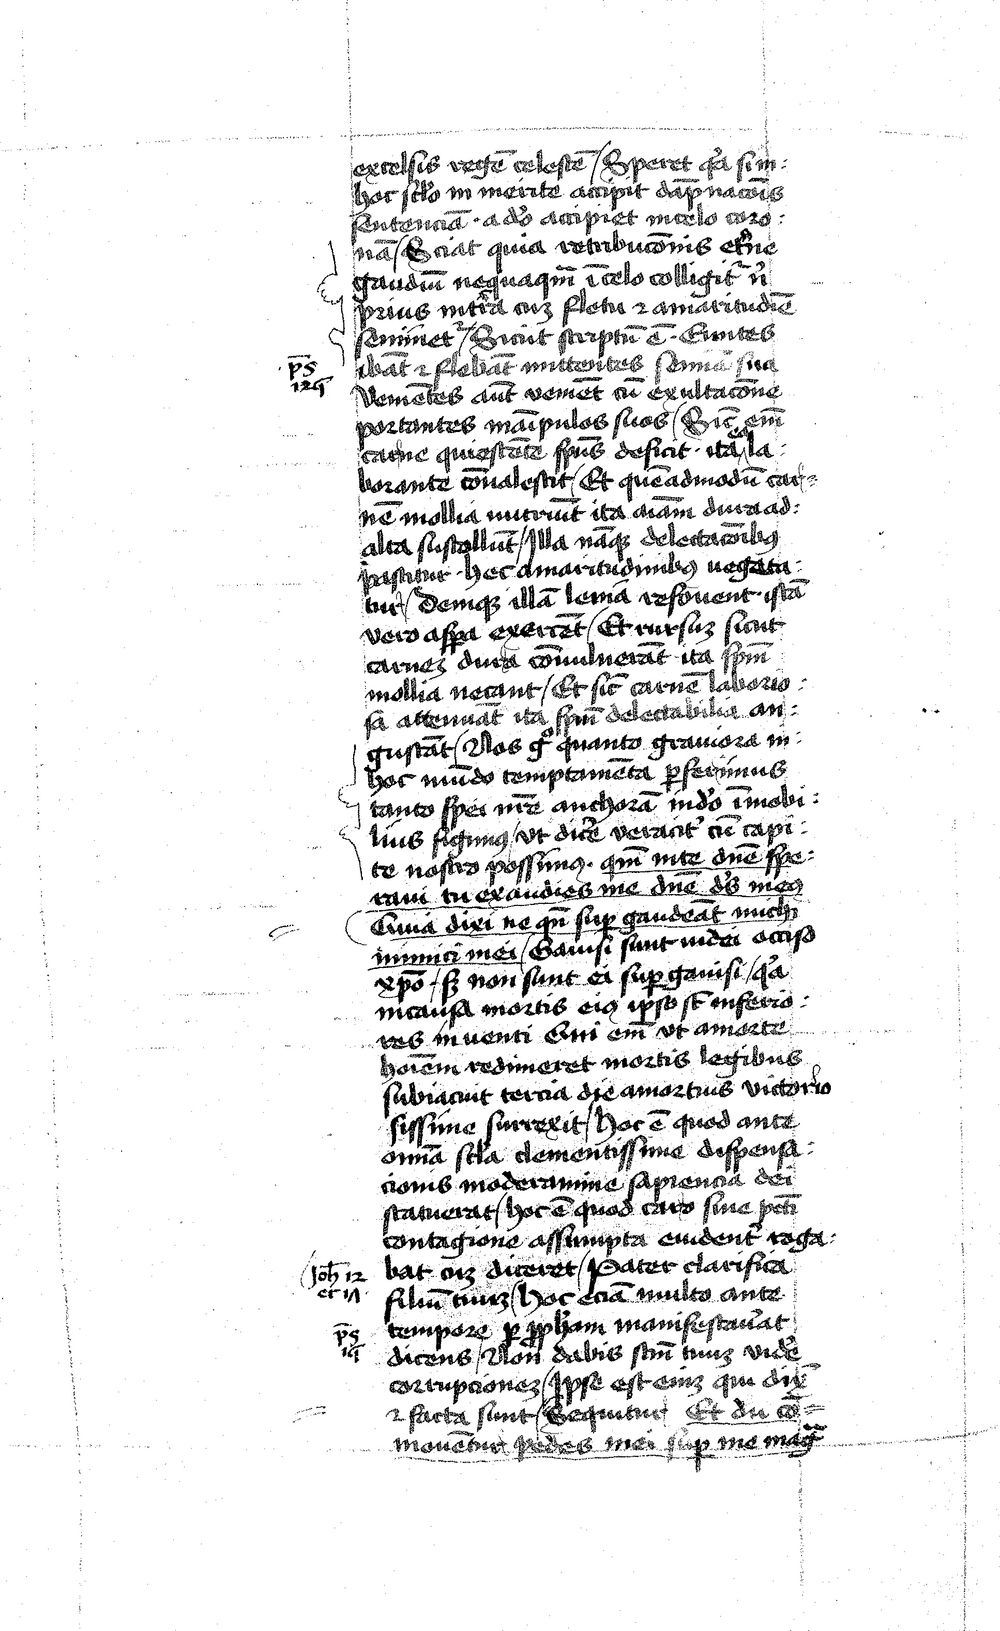 excelsis regē celestē / Speret qa si in :
hoc sclo in merite accipit dāpnacōis
sentenciā · a do accipiet in celo coro :
nā / Sciat quia retribucōnis etne
gaudiū nequaqm ī celo colligit nī
prius in tra cuz fletu ⁊ amaritudīe
seminet / Sicut scriptū ē · Euntes
ibāt ⁊ flebāt mittentes semīa sua
ps
125
Veniētes aūt veniēt cū exultacōne
portantes maīpulos suos / Sic em
carne quiescēte spūs deficit · ita ea la :
borante cōualescit / Et quēadmodū car :
nē mollia nutriūt ita aīam dura ad :
alta sustollūt / Illa nāqz delectacōibꝰ
pascitur · hec amaritudinibꝰ vegeta :
tur / Deniqz illā lenia refouent · istā
vero aspa exercēt / Et rursuz sicut
carnez dura cōuulnerāt ita spm
mollia necant / Et sic carnē laborio :
sa attenuāt ita spm delectabilia an :
gustāt / Nos go quanto grauiora in :
hoc mūdo temptamēta pferimus
tanto spei nrē anchorā in do īmobi :
lius figimꝰ / vt dicē veracit cū capi :
te nostro possimꝰ · qm in te dnē spe :
raui tu exaudies me dnē ds meꝰ
Quia dixi ne qn sup gaudeāt michi
inimici mei / Gauisi sunt iudei occiso
xpō · sz non sunt ei sup gauisi / qa
in causa mortis eiꝰ ipso st inferio :
res inuenti Qui em vt a morte
hoīem redimeret mortis legibus
subiacuit tercia die a mortuis victorio
sissime surrexit / Hoc ē quod ante
omīa scla clementissime dispensa :
cionis moderamine sapiencia dei
statuerat / hoc ē quod caro sine pcti
contagione assumpta euident roga :
Joh 12
et 17
bat cuz diceret / Pater clarifica
filiū tuuz / Hoc eciā multo ante
ps
15
tempore p ppham manifestauat
dicens / Non dabis scm tuuz vidē
corrupcionez / Ipse est eniz qui dix
⁊ facta sunt / Sequitur Et dū cō =
mouētur pedes mei sup me mag